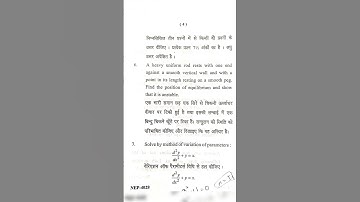 ( 4 )
निम्नलिखित तीन प्रश्नों में से किन्हीं दो प्रश्नों के
उत्तर दीजिए। प्रत्येक प्रश्न 7½ अंकों का है। लघु
उत्तर अपेक्षित है।
6. A heavy uniform rod rests with one end
against a smooth vertical wall and with a
point in its length resting on a smooth peg.
Find the position of equilibrium and show
that it is unstable.
एक भारी समान छड़ एक सिरे से चिकनी ऊर्ध्वाधर
दीवार पर टिकी हुई है तथा इसकी लम्बाई में एक
बिन्दु चिकने खूँटे पर स्थिर है। सन्तुलन की स्थिति को
परिभाषित कीजिए और दिखाइए कि यह अस्थिर है।
7. Solve by method of variation of parameters :
d²y/dx² + y = 0.
वेरिएशन ऑफ पैरामीटर्स विधि से हल कीजिए :
d²y/dx² + y = 0.
NEP-4025